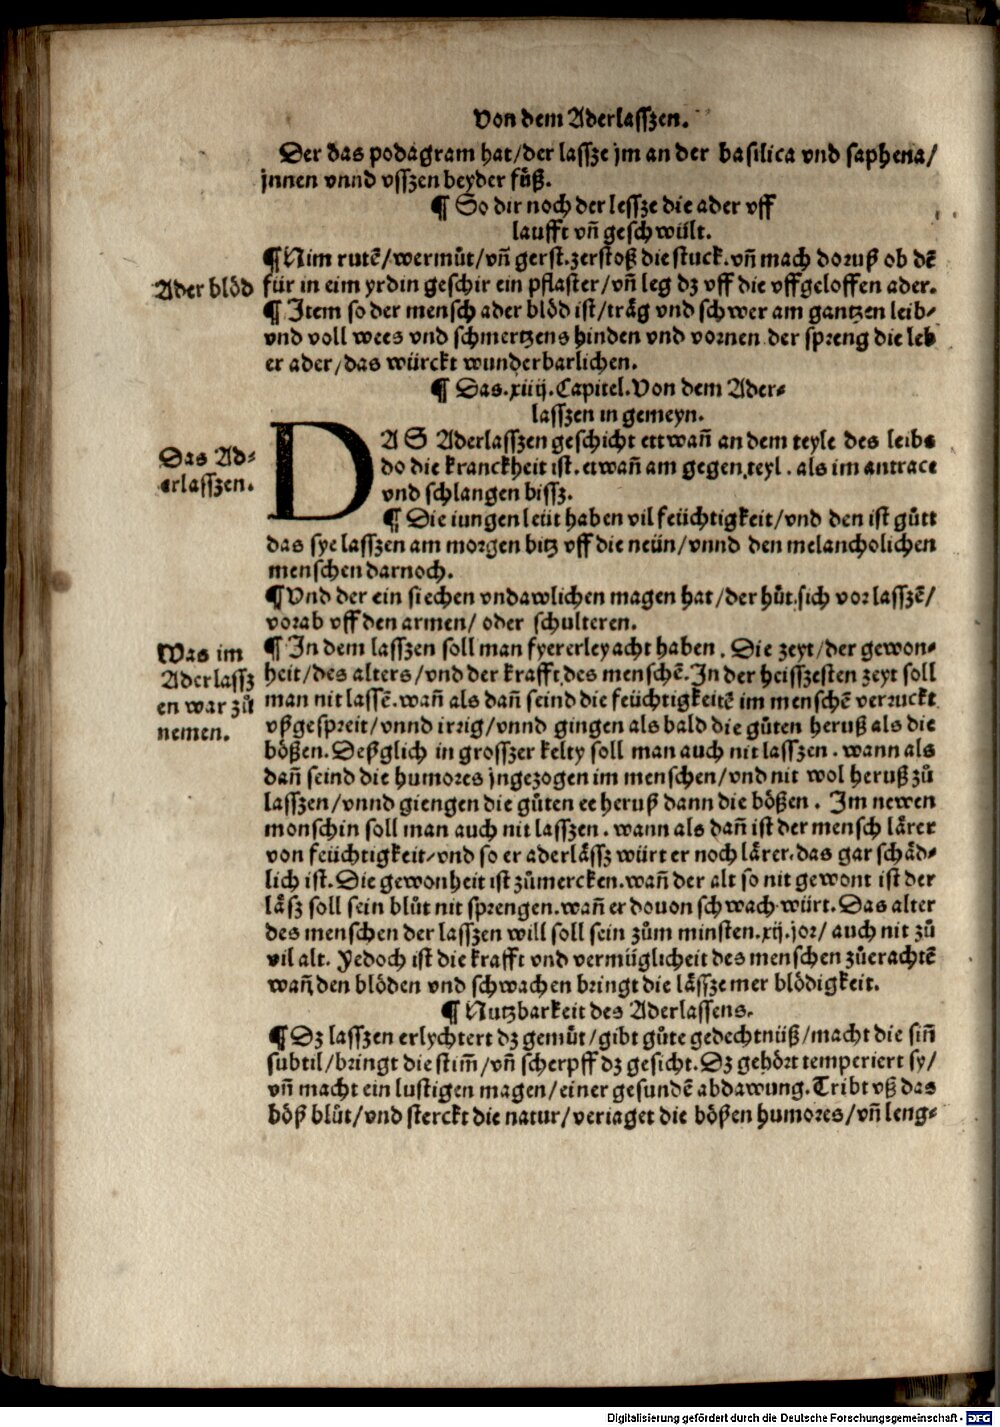 Von dem Aderlasszen.
Der das podagram hat/der lassze jm an der basilica vnd saphena/
jnnen vnnd vsszen beyder füß.
¶ So dir noch der lessze die ader vff
laufft vñ geschwült.
¶Nim rutē/wermůt/vñ gerst.zerstoß die stuck.vñ mach doruß ob dē
Ader blöd
für in eim yrdin geschir ein pflaster/vñ leg dz vff die vffgeloffen ader.
¶ Item so der mensch ader blöd ist/träg vnd schwer am gantzen leib/
vnd voll wees vnd schmertzens hinden vnd vornen der spreng die leb
er ader/das würckt wunderbarlichen.
¶ Das.xiiij.Capitel.Von dem Ader⸗
lasszen in gemeyn.
DAS Aderlasszen geschicht ettwañ an dem teyle des leibs
Das Ad⸗
erlasszen.
do die kranckheit ist.etwañ am gegen teyl. als im antrace
vnd schlangen bissz.
¶ Die iungen leüt haben vil feüchtigkeit/vnd den ist gůtt
das sye lasszen am morgen bitz vff die neün/vnnd den melancholichen
menschen darnoch.
¶Vnd der ein siechen vndawlichen magen hat/der hůt sich vor lasszē/
vorab vff den armen/ oder schulteren.
Was im
Aderlassz
en war zů
nemen.
¶ In dem lasszen soll man fyererley acht haben. Die zeyt/der gewon⸗
heit/des alters/vnd der krafft des menschē.In der heisszesten zeyt soll
man nit lassē.wañ als dañ seind die feüchtigkeitē im menschē verruckt
vßgespreit/vnnd irrig/vnnd gingen als bald die gůten heruß als die
bößen.Deßglich in grosszer kelty soll man auch nit lasszen. wann als
dañ seind die humores jngezogen im menschen/vnd nit wol heruß zů
lasszen/vnnd giengen die gůten ee heruß dann die bößen. Im newen
monschin soll man auch nit lasszen. wann als dañ ist der mensch lärer
von feüchtigkeit/vnd so er aderlässz würt er noch lärer.das gar schäd⸗
lich ist.Die gewonheit ist zůmercken.wañ der alt so nit gewont ist der
läsz soll sein blůt nit sprengen.wañ er douon schwach würt.Das alter
des menschen der lasszen will soll sein zům minsten.xij.jor/ auch nit zů
vil alt. Yedoch ist die krafft vnd vermüglicheit des menschen zůerachtē
wañ den blöden vnd schwachen bringt die lässze mer blödigkeit.
¶ Nutzbarkeit des Aderlassens.
¶ Dz lasszen erlychtert dz gemůt/gibt gůte gedechtnüß/macht die siñ
subtil/bringt die stim̄/vñ scherpff dz gesicht.Dz gehört temperiert sy/
vñ macht ein lustigen magen/einer gesundē abdawung.Tribt vß das
böß blůt/vnd sterckt die natur/veriaget die bößen humores/vñ leng⸗
Digitalisierung gefördert durch die Deutsche Forschungsgemeinschaft - DFG